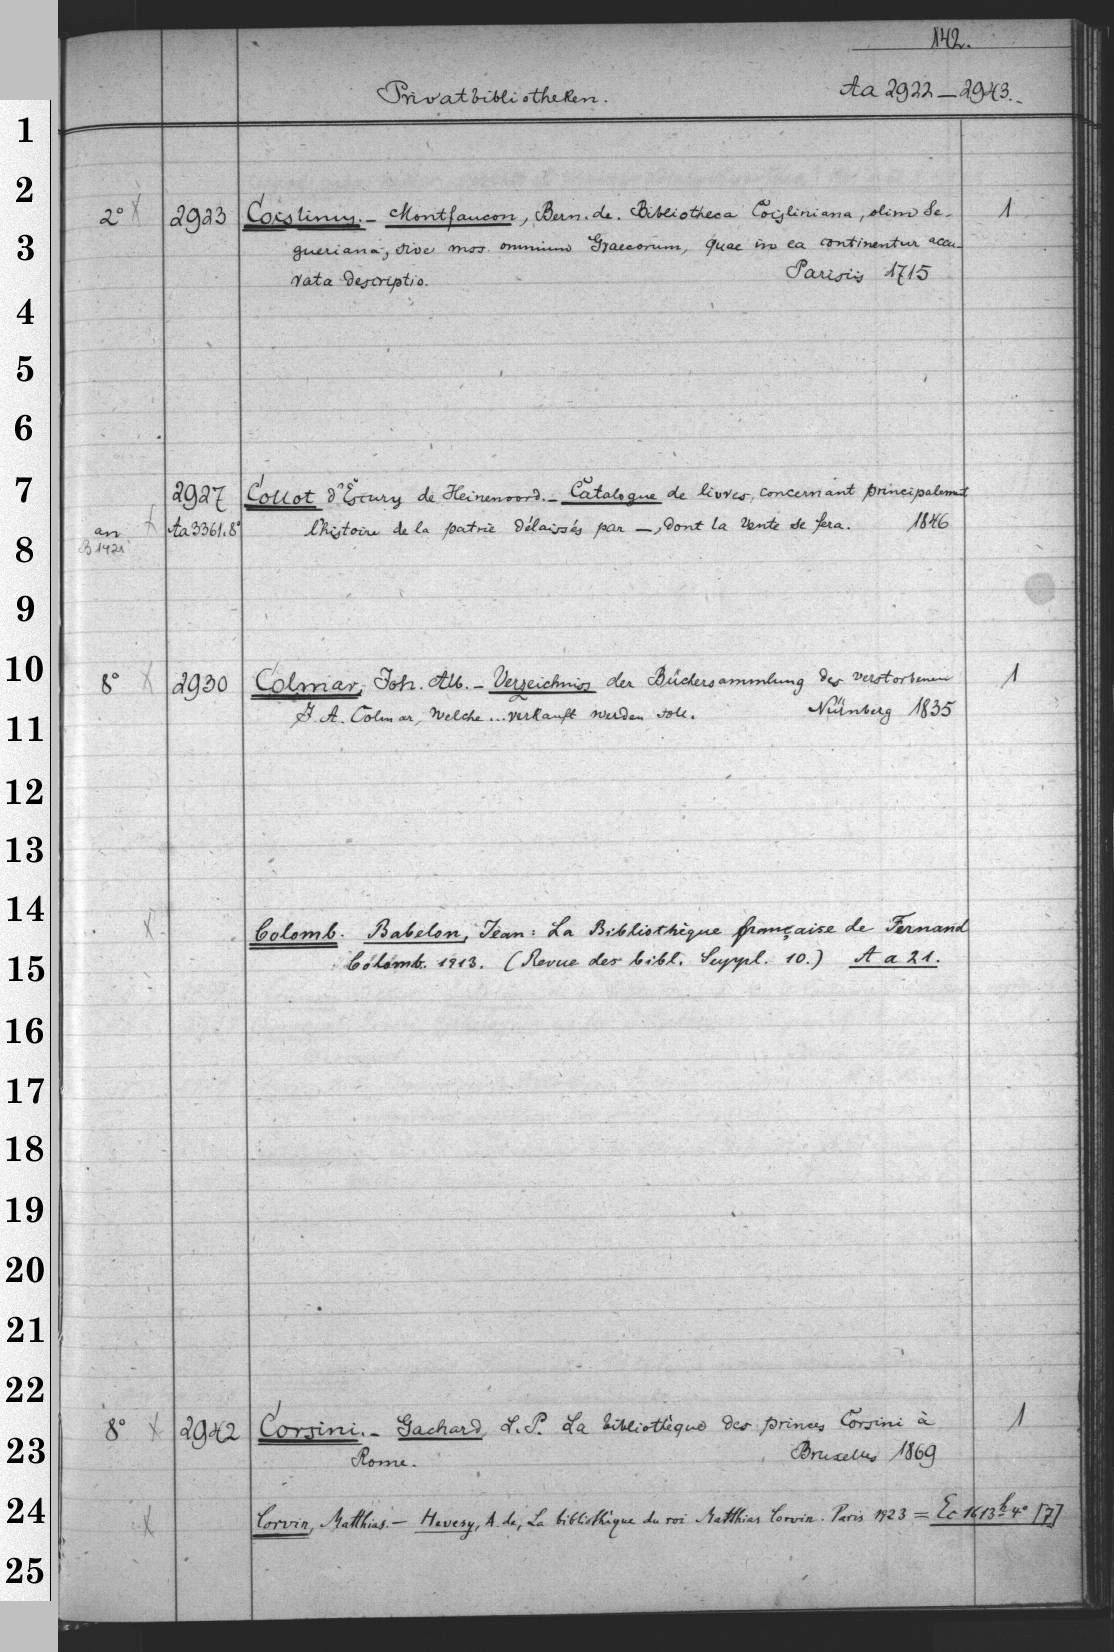 142.
Privatbibliotheken. Aa 2922 – 2943.
2° X 2923 Coislinus. – Montfaucon, Bern. de. Bibliotheca Coisliniana, olim Se- 1
gueriana, sive mss. omnium Graecorum, quae in ea continentur accu-
rata descriptio. Parisiis 1715
2927 Collot d'Escury de Heinenoord. – Catalogue de livres, concernant principalement
an X Aa 3361.8° l'histoire de la patrie délaissés par –, dont la vente se fera. 1846
8° X 2930 Colmar, Joh. Alb. – Verzeichniss der Büchersammlung des verstorbenen 1
J. A. Colmar, welche ... verkauft werden soll. Nürnberg 1835
X Colomb. Babelon, Jean: La Bibliothèque française de Fernand
Colomb. 1913. (Revue des bibl. Suppl. 10.) A a 21.
8° X 2942 Corsini. – Gachard, L. P. La bibliothèque des princes Corsini à 1
Rome. Bruxelles 1869
X Corvin, Matthias. – Hevesy, A. de, La bibliothèque du roi Matthias Corvin. Paris 1923 = Ec 1613h 4° [7]
1
2
3
4
5
6
7
8
9
10
11
12
13
14
15
16
17
18
19
20
21
22
23
24
25